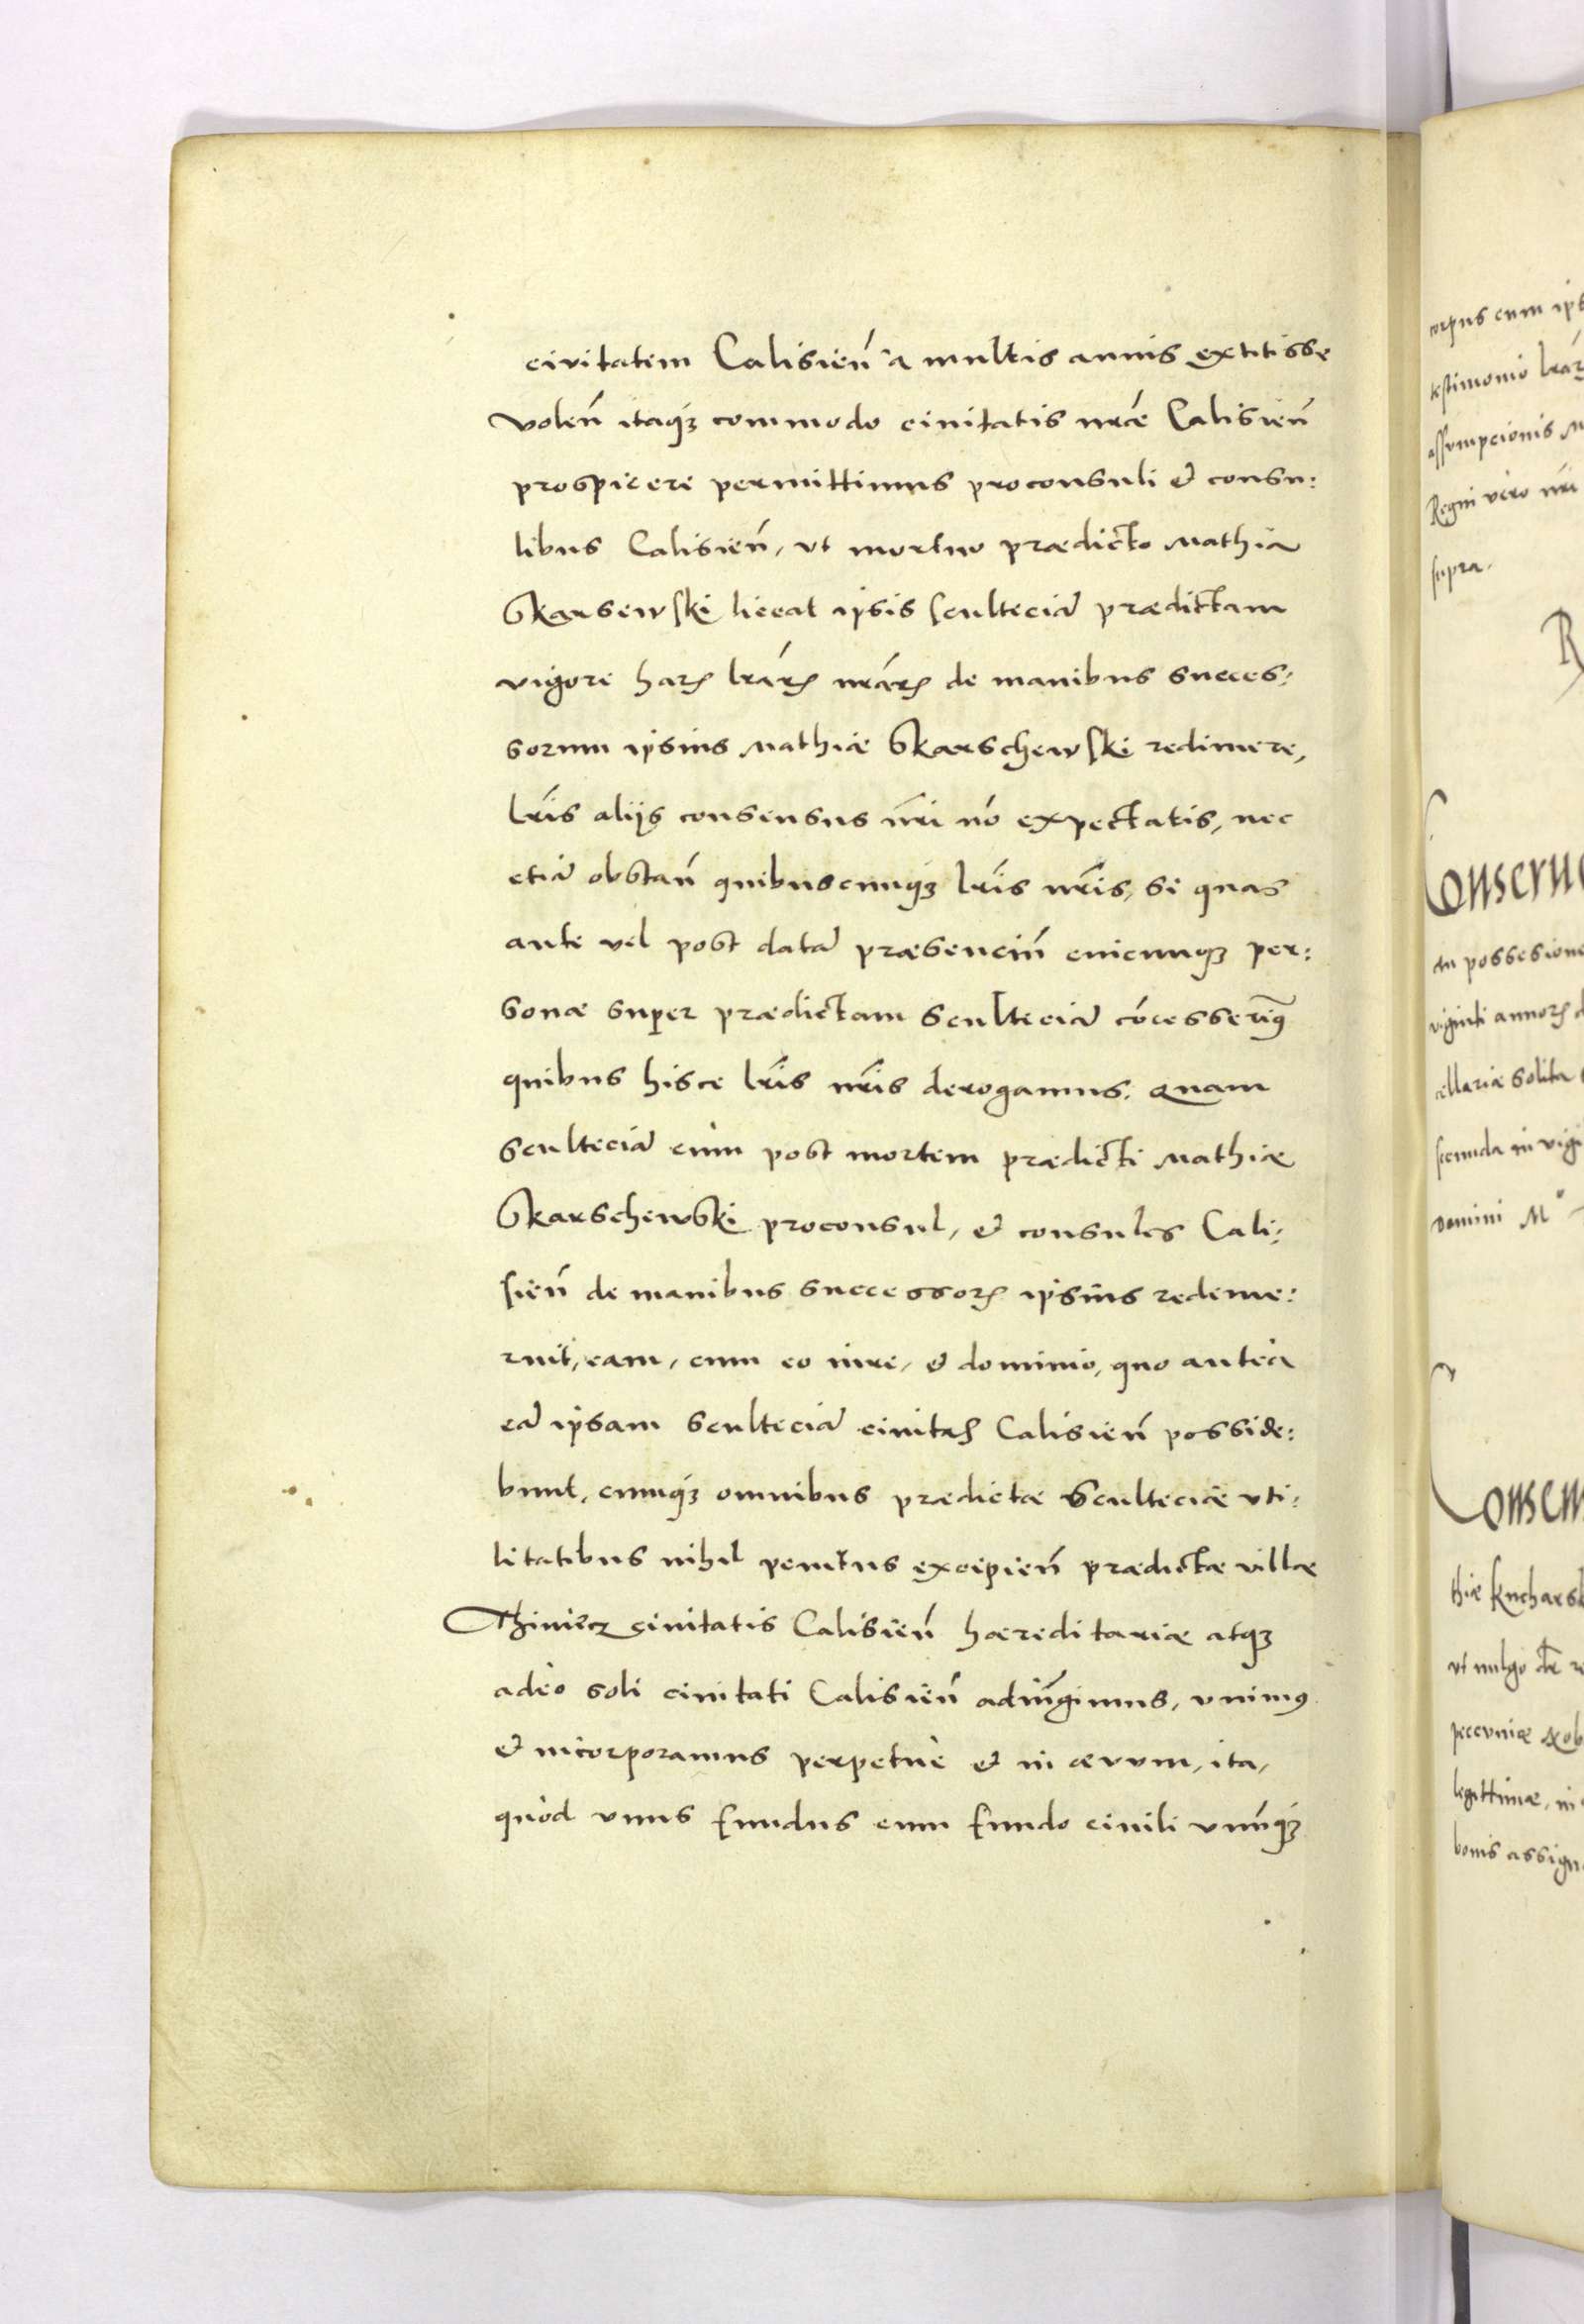 civitatem Calisień a multis annis extitisse
volen̄ itaqꝫ commodo civitatis nrae̅ Calisien̄
prospicere permittimus proconsuli et consu:
libus Calisien̄, ut mortuo praedicto Mathia
Skarsewski liceat ipsis scultecia̅ praedictam
vigore harꝝ lrārꝝ nrārꝝ de manibus succes:
sorum ipsius Mathiae Skarschewski redimere,
lrīs alijs consensus nrī nō expectatis, nec
etia̅ obstan̄ quibuscunqꝫ lrīs nrīs, si quas
ante vel post data̅ praesencin̄ cuicunqꝫ per:
sonae super praedictam scultecia̅ cōcesserimꝰ
quibus hisce lrīs nrīs derogamus. Quam
scultecia̅ cum post mortem praedicti Mathiae
Skarschewski proconsul, et consules Cali:
sien̄ de manibus successorꝝ ipsius redeme:
rint, eam, cum eo iure, et dominio, quo antea
ea̅ ipsam scultecia̅ civitas Calisien̄ posside:
bunt, cumqꝫ omnibus praedictae sculteciae uti:
litatibus nihil penitus excipien̄ praedictae villae
civitatis Calisien̄ haereditariae atqꝫ
adeo soli civitati Calisien̄ adiūgimus, unimꝰ
et incorporamus perpetue et in aevum, ita,
quod unus fundus cum fundo civili unūqꝫ
corpus cum ips
testimonio lrārꝝ
assumpcionis M
Regni vero nrī
supra.
R
Conserva
possesione
viginti annorꝝ
cellariae solita
secunda in vigi
Domini M
Consen
thiae Kucharsk
ut vulgo
pecuniae
legittimae, in
bonis assign